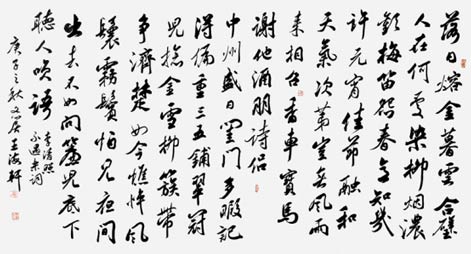 落日熔金暮雲合璧
人在何處染柳烟濃
吹梅笛怨春意知幾
許元宵佳節融和
天氣次第豈無風雨
來相召香車寶馬
謝他酒朋詩侶
中州盛日閨門多暇記
得偏重三五鋪翠冠
兒撚金雪柳簇帶
爭濟楚如今憔悴風
鬟霧鬢怕見夜間
出去不如向簾兒底下
聽人笑語
李清照
永遇樂詞
庚子之秋王海軒